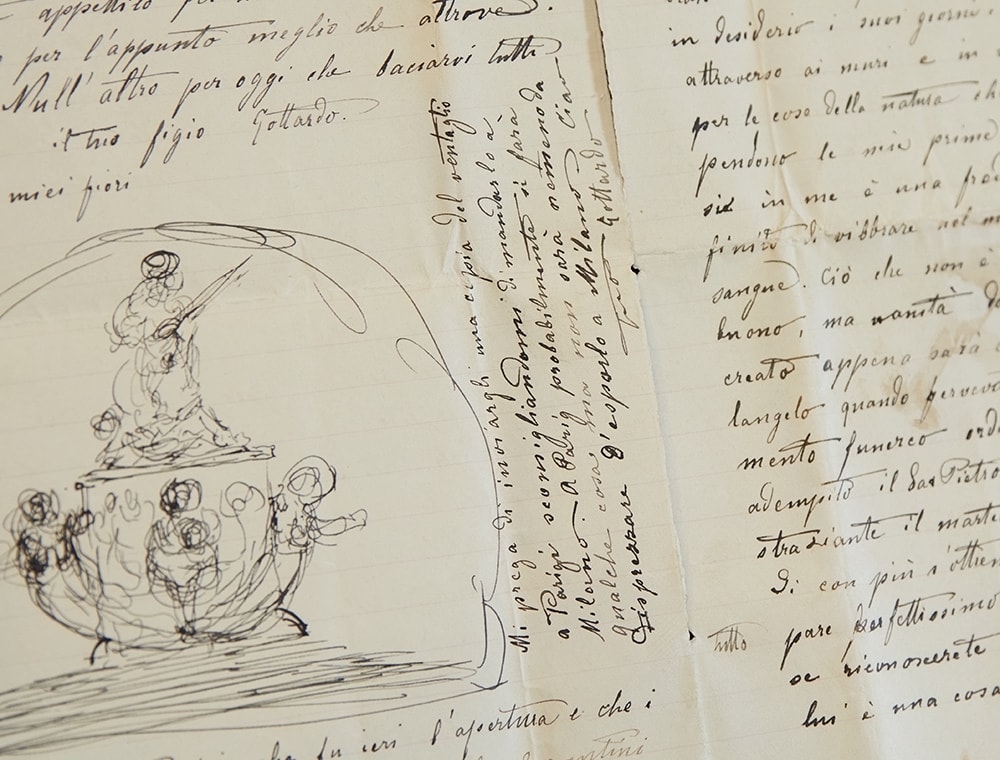 appetito per
per l'appunto meglio che altrove.
Null' altro per oggi che baciarvi tutti
il tuo figio Gottardo.
miei fiori
Mi prega di inviargli una copia del ventaglio
a Parigi sconsigliandomi di mandarlo a
Milano. A Parig probabilmente si farà
qualche cosa, ma non sarà nemeno da
disprezzare D'esporlo a Milano Ciao
Tuo Gottardo
fu ieri l'apertura e che i
in desiderio i suoi giorni.
attraverso ai muri e in
per le cose della natura che
pendono le mie prime
sie in me è una
finito di vibbrare nel
sangue. Ciò che non è
buono, ma vanità
creato appena sarà
langelo quando
mento funereo
adempito il San Pietro
straziante il
Di con più s'
tutto pare perfettissimo
se riconoscerete
lui è una cosa